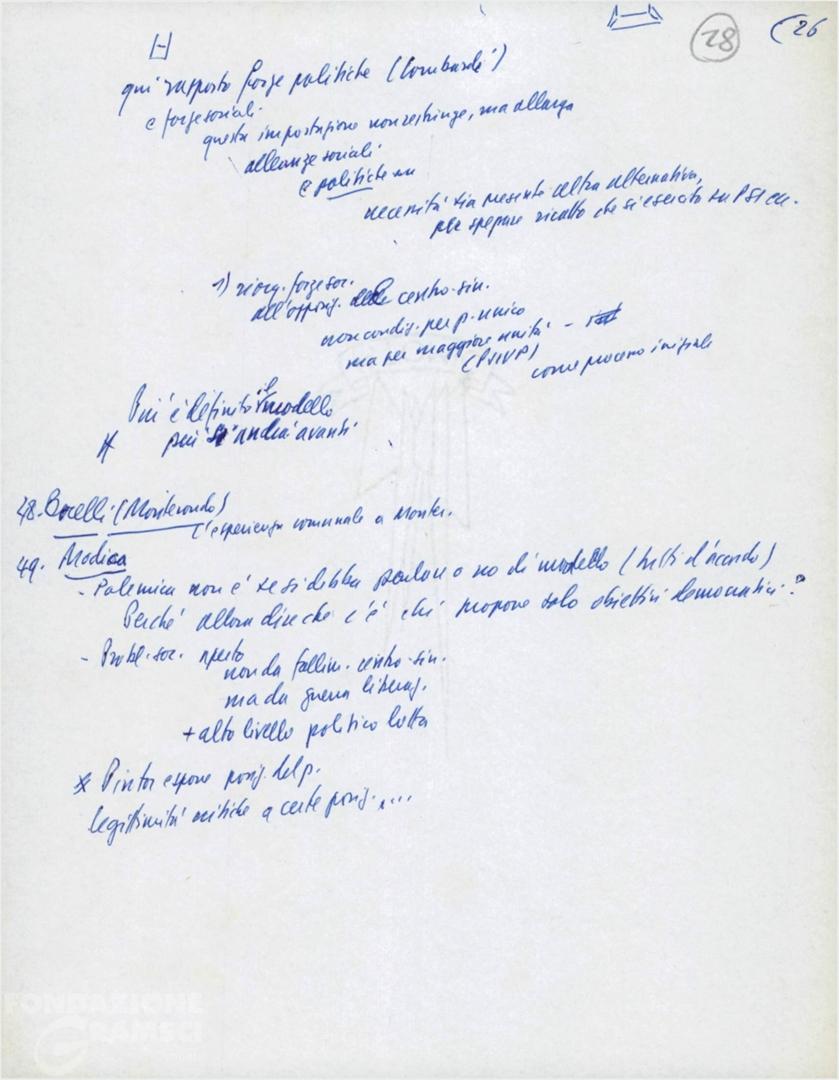 28 (26
H
qui rapporto forze politiche (Lombardi)
e forze sociali
questa impostazione non restringe, ma allarga
alleanze sociali
e politiche
necessità sia presente altra alternativa,
per spezzare ricatto che si esercita su PSI ecc.
1) riorg. forze soc.
all'oppos. delle centro-sin.
non condiz. per p. unico
ma per maggiore unità -
(PSIUP)
come processo iniziale
Più è definito il modello
più si andrà avanti
48. Bocelli (Monterondo)
L'esperienza comunale a Monter.
49. Modica
- Polemica non è se si debba parlare o no di modello (tutti d'accordo)
Perché allora dire che c'è chi propone solo obiettivi democratici?
- Probl. soc. aperto
non da fallim. centro-sin.
ma da guerra liberaz.
+ alto livello politico lotta
* Pintor espone posiz. del p.
legittimità critiche a certe posiz. ....
FONDAZIONE
GRAMSCI